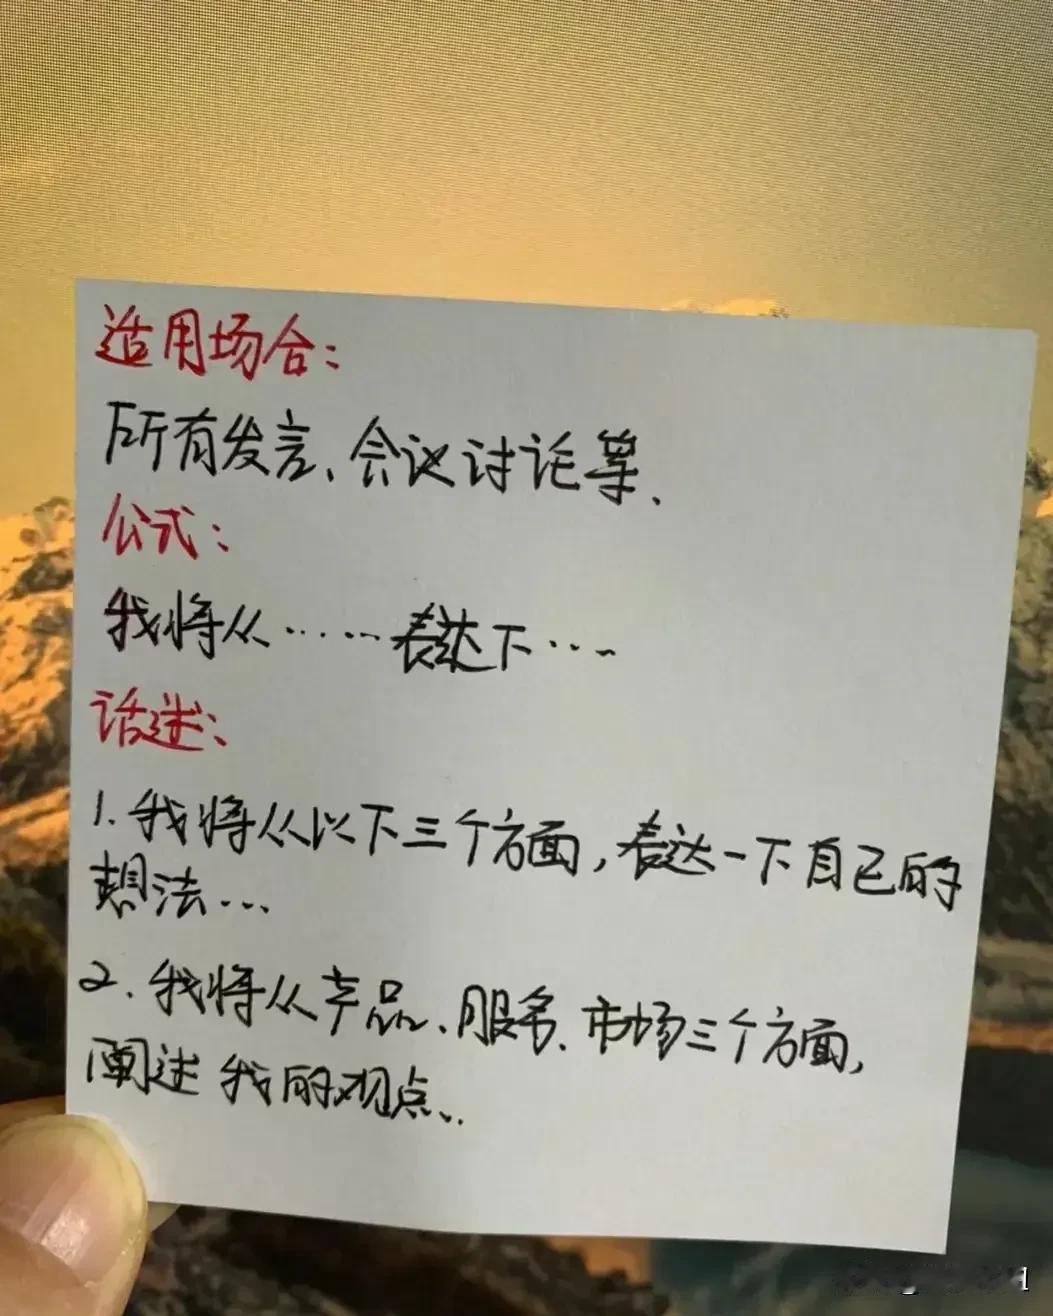 适用场合：
所有发言、会议讨论等、
公式：
我将从……表达下……
话述：
1.我将从以下三个方面，表达一下自己的
想法…
2.我将从产品、服务、市场三个方面，
阐述我的观点…
1